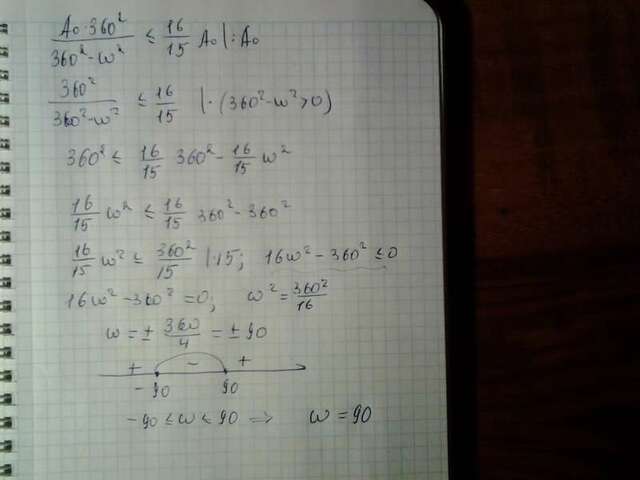 A₀·360² / 360²-ω² ≤ 16/15 A₀ |:A₀
360² / 360²-ω² ≤ 16/15 |·(360²-ω²>0)
360² ≤ 16/15 360² - 16/15 ω²
16/15 ω² ≤ 16/15 360² - 360²
16/15 ω² ≤ 360²/15 |·15; 16ω² - 360² ≤ 0
16ω² - 360² = 0; ω² = 360²/16
ω = ± 360/4 = ± 90
+ - +
-90 90
-90 ≤ ω ≤ 90 ⇒ ω = 90